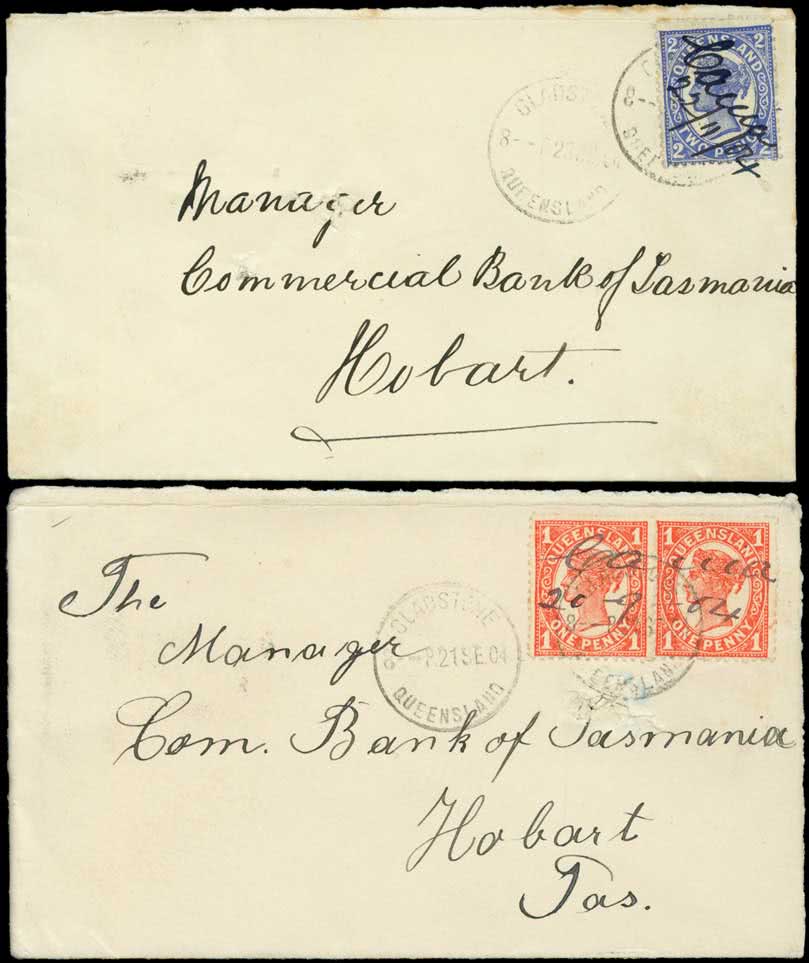 2 QUEENSLAND 2
2 TWO PENCE 2
22/11/04
GLADSTONE
8- -P 23 04
QUEENSLAND
Manager
Commercial Bank of Tasmania
Hobart.
1 QUEENSLAND 1
1 ONE PENNY 1
1 QUEENSLAND 1
1 ONE PENNY 1
20 9 04
GLADSTONE
8- -P.21 SE.04
QUEENSLAND
The
Manager
Com. Bank of Tasmania
Hobart
Tas.